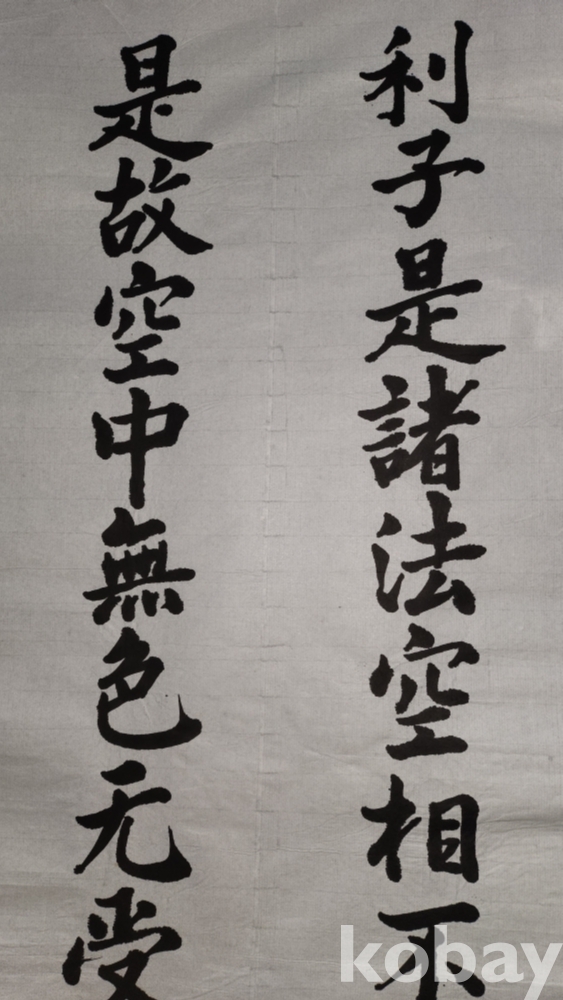 利子是諸法空相不
是故空中無色无受
kobay